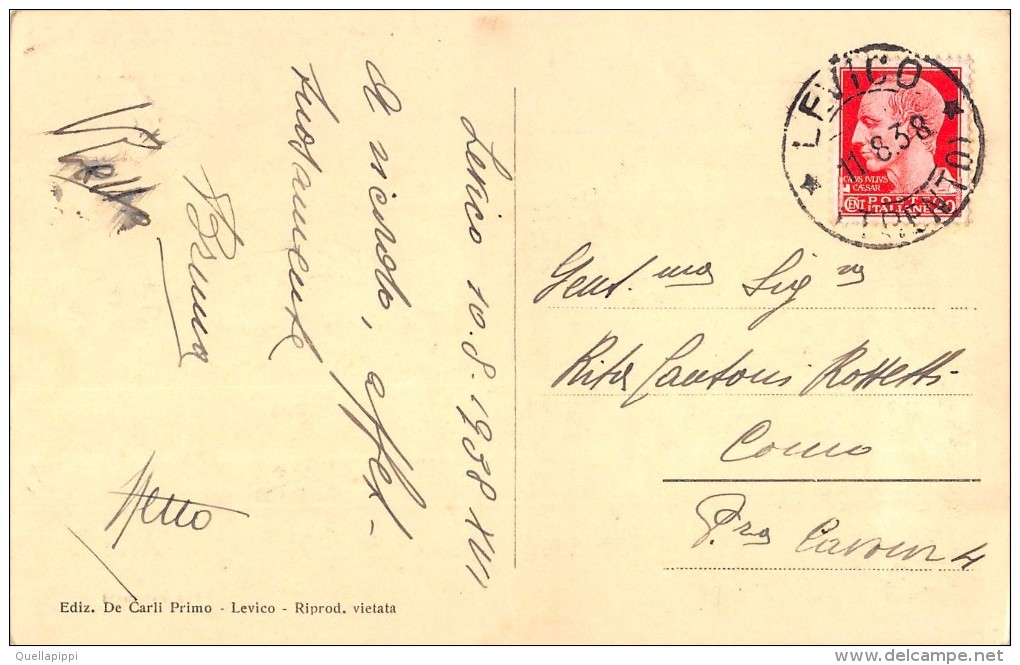 Levico 10.8.1938 XVI
Vi ricordo, affet-
tuosamente
Bruna
LEVICO
11.8.38
(TRENTO)
CAIVS IVLIVS
CAESAR
POSTE
CENT ITALIANE 20
Gent.ma Sig.ra
Rita Cantoni Rossetti
Como
P.za Cavour 4
Ediz. De Carli Primo - Levico - Riprod. vietata
Quellapippi